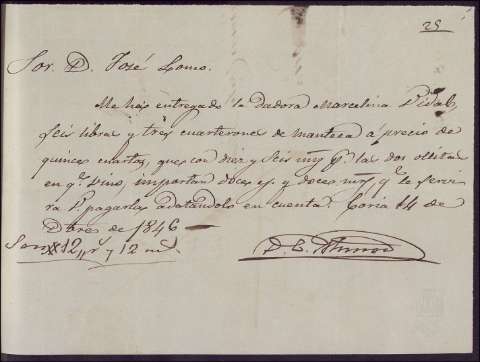 25
Sor. D. José Lomo.
Me ha entregado la Dadora Marcelina Vidal,
seis libras y tres cuarterones de manteca á precio de
quince cuartos, que con diez y seis mrs. las dos ollitas
en q. vino, importan doce y doce mrs. q. le servi
ra P. pagarlos adatandolo en cuenta. Coria 14 de
Dbre de 1846
Son 12 y 12 mrs.